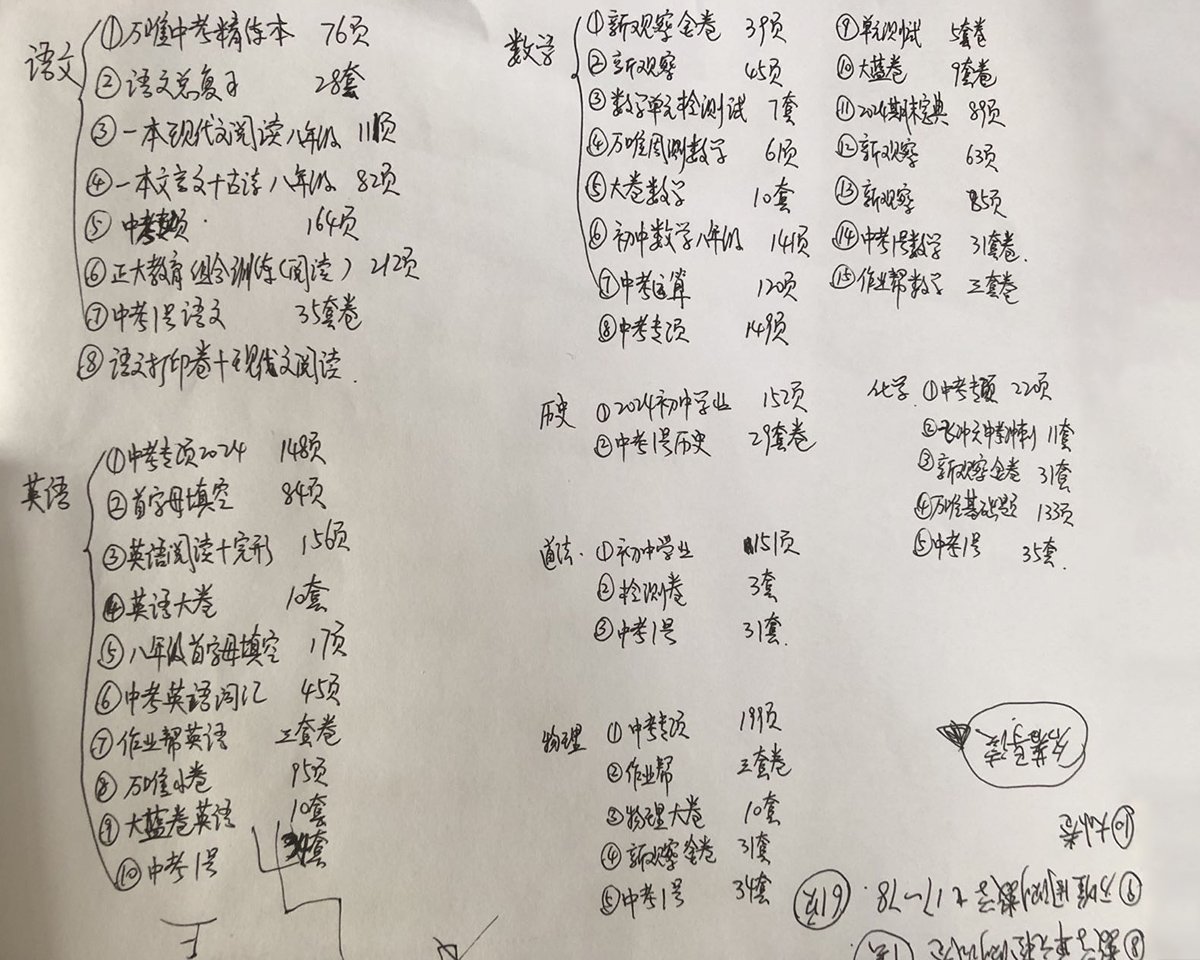 语文
①万唯中考精练本 76页
②语文总复习 28套
③一本现代文阅读八年级 111页
④一本文言文+古诗八年级 82页
⑤中考专项 164页
⑥正大教育组合训练(阅读) 212页
⑦中考1号语文 35套卷
⑧语文打印卷+现代文阅读
英语
①中考专项2024 148页
②首字母填空 84页
③英语阅读+完形 156页
④英语大卷 10套
⑤八年级首字母填空 17页
⑥中考英语词汇 45页
⑦作业帮英语 三套卷
⑧万唯小卷 95页
⑨大蓝卷英语 10套
⑩中考1号 34套
数学
①新观察金卷 39页
②新观察 45页
③数学单元检测试 7套
④万唯周测数学 61页
⑤大卷数学 10套
⑥初中数学八年级 141页
⑦中考运算 120页
⑧中考专项 149页
⑨单元测试 5套卷
⑩大蓝卷 9套卷
⑪2024期末宝典 89页
⑫新观察 63页
⑬新观察 85页
⑭中考1号数学 31套卷.
⑮作业帮数学 三套卷
历史
①2024初中学业 152页
②中考1号历史 29套卷
化学
①中考专项 220页
②飞冲天中考冲刺 11套
③新观察金卷 31套
④万唯基础题 133页
⑤中考1号 35套.
道法.
①初中学业 151页
②检测卷 3套
③中考1号 31套.
物理
①中考专项 199页
②作业帮 三套卷
③物理大卷 10套
④新观察金卷 31套
⑤中考1号 34套
⑧数学单元检测试卷
⑨万唯周测数学 P17~78. 61页
⑩大小卷